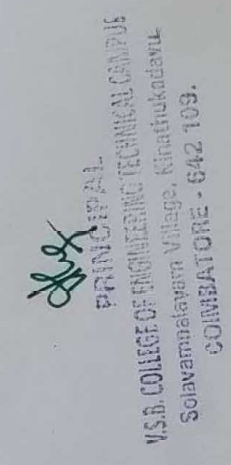 PRINCIPAL
V.S.B. COLLEGE OF ENGINEERING TECHNICAL CAMPUS
Solavampalayam Village, Kinathukadavu,
COIMBATORE - 642 109.